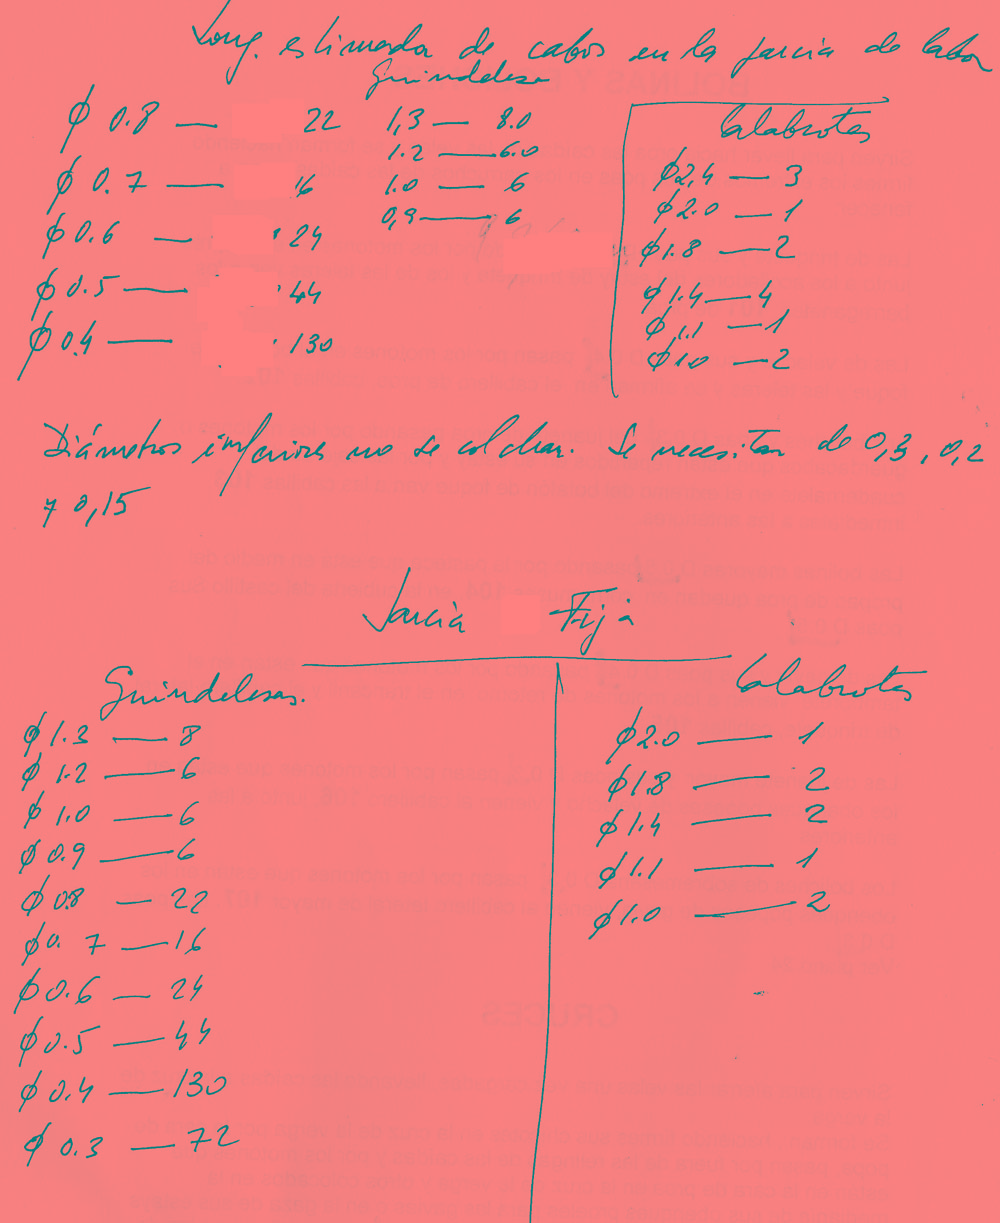 Long. estimada de cabos en la jarcia de labor
Guindelesa
φ 0.8 — 22
φ 0.7 — 16
φ 0.6 — 24
φ 0.5 — 44
φ 0.4 — 130
1,3 — 8.0
1.2 — 6.0
1.0 — 6
0,9 — 6
Calabrotes
φ 2,4 — 3
φ 2.0 — 1
φ 1.8 — 2
φ 1.4 — 4
φ 1.1 — 1
φ 1.0 — 2
Diámetros inferiores no se colchan. Se necesitan de 0,3, 0,2
y 0,15
Jarcia Fija
Guindelesas.
φ 1.3 — 8
φ 1.2 — 6
φ 1.0 — 6
φ 0.9 — 6
φ 0.8 — 22
φ 0.7 — 16
φ 0.6 — 24
φ 0.5 — 44
φ 0.4 — 130
φ 0.3 — 72
Calabrotes
φ 2.0 — 1
φ 1.8 — 2
φ 1.4 — 2
φ 1.1 — 1
φ 1.0 — 2